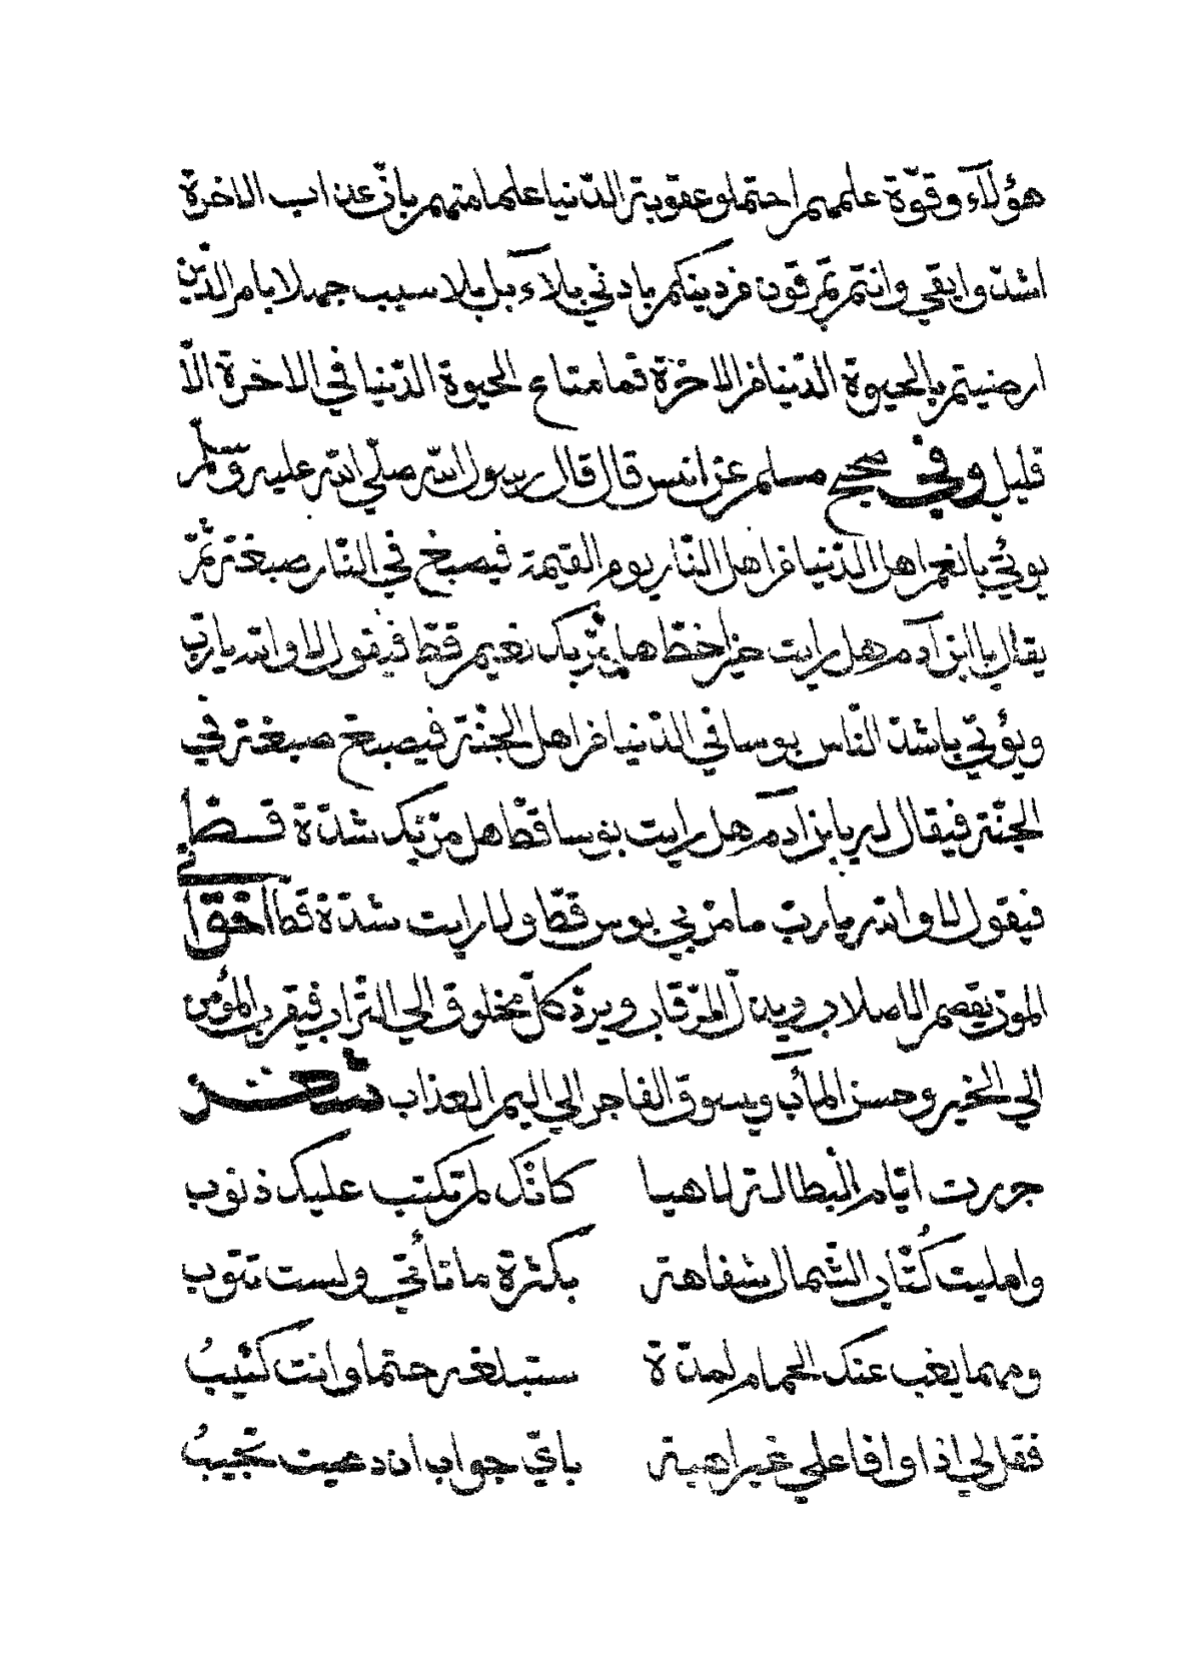 هؤلآء وقوّة علمهم احتملو عقوبة الدّنيا علما منهم بانّ عذاب الاخرة
اشدّ وابقي وانتم تمرقون من دينكم بادني بلآء بل بلا سبب جهلا بامر الدّين
ارضيتم بالحيوة الدّنيا من الاخرة فما متاع الحيوة الدّنيا في الاخرة الّا
قليل وفي صحيح مسلم عن انس قال قال رسول الله صلّي الله عليه وسلم
يوتي بانعم اهل الدّنيا من اهل النّار يوم القيمة فيصبغ في النّار صبغة ثمّ
يقال يا ابن آدم هل رايت خيرا قطّ هل مرّ بك نعيم قطّ فيقول لا والله يا ربّ
ويؤتي باشدّ النّاس بوسا في الدّنيا من اهل الجنّة فيصبغ صبغة في
الجنّة فيقال له يا بن آدم هل رايت بوسا قطّ هل مرّ بك شدّة قطّ
فيقول لا والله يا ربّ ما مرّ بي بوس قطّ ولا رايت شدّة قطّ
الموت يقصم الاصلاب ويذلّ الرّقاب ويردّ كلّ مخلوق الي التّراب فيقرب المؤمن
الي الخير وحسن المآب ويسوق الفاجر الي اليم العذاب شعر
جررت ايّام البطالة لاهيا كانّك لم تكتب عليك ذنوب
وامليت كُتّاب الشّمال سفاهة بكثرة ما تأتي ولست تتوب
ومهما يغب عنك الحمام لمدّة ستبلغه حتما وانت كئيبُ
فقل لي اذا وافا علي غير اهبة بايّ جواب ان دعيت تجيبُ